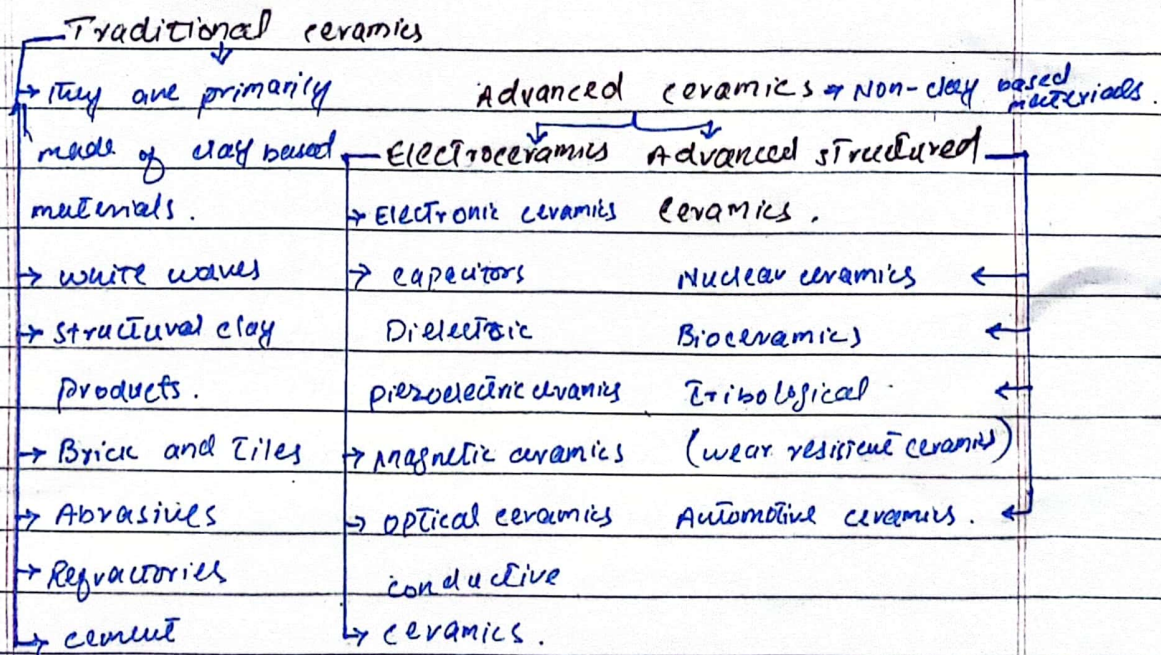 Traditional ceramics
They are primarily
made of clay based
materials.
White waves
Structural clay
products.
Brick and Tiles
Abrasives
Refractories
cement
Advanced ceramics Non-clay based materials.
Electroceramics
Electronic ceramics
capacitors
Dielectric
piezoelectric ceramics
magnetic ceramics
optical ceramics
conductive
ceramics.
Advanced structured
ceramics.
Nuclear ceramics
Bioceramics
Tribological
(wear resistent ceramics)
Automotive ceramics.